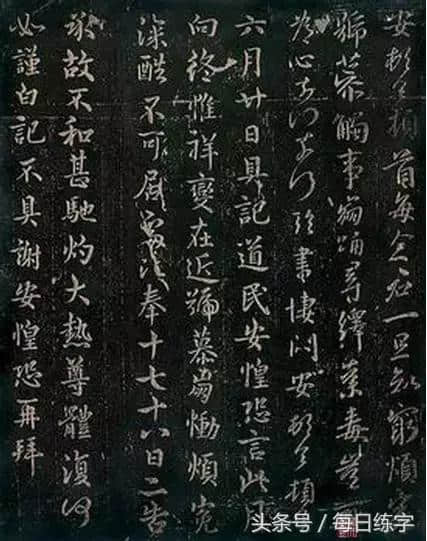 安頓首頓首每念君一旦知窮煩冤
號慕觸事崩踊尋繹荼毒豈可
為心奈何奈何臨書悽悶安頓首頓
六月廿日具記道民安惶恐言此月
向終惟祥變在近號慕崩慟煩冤
深酷不可居處比奉十七十八日二告
承故不和甚馳灼大熱尊體復何
如謹白記不具謝安惶恐再拜
头条号 / 每日练字